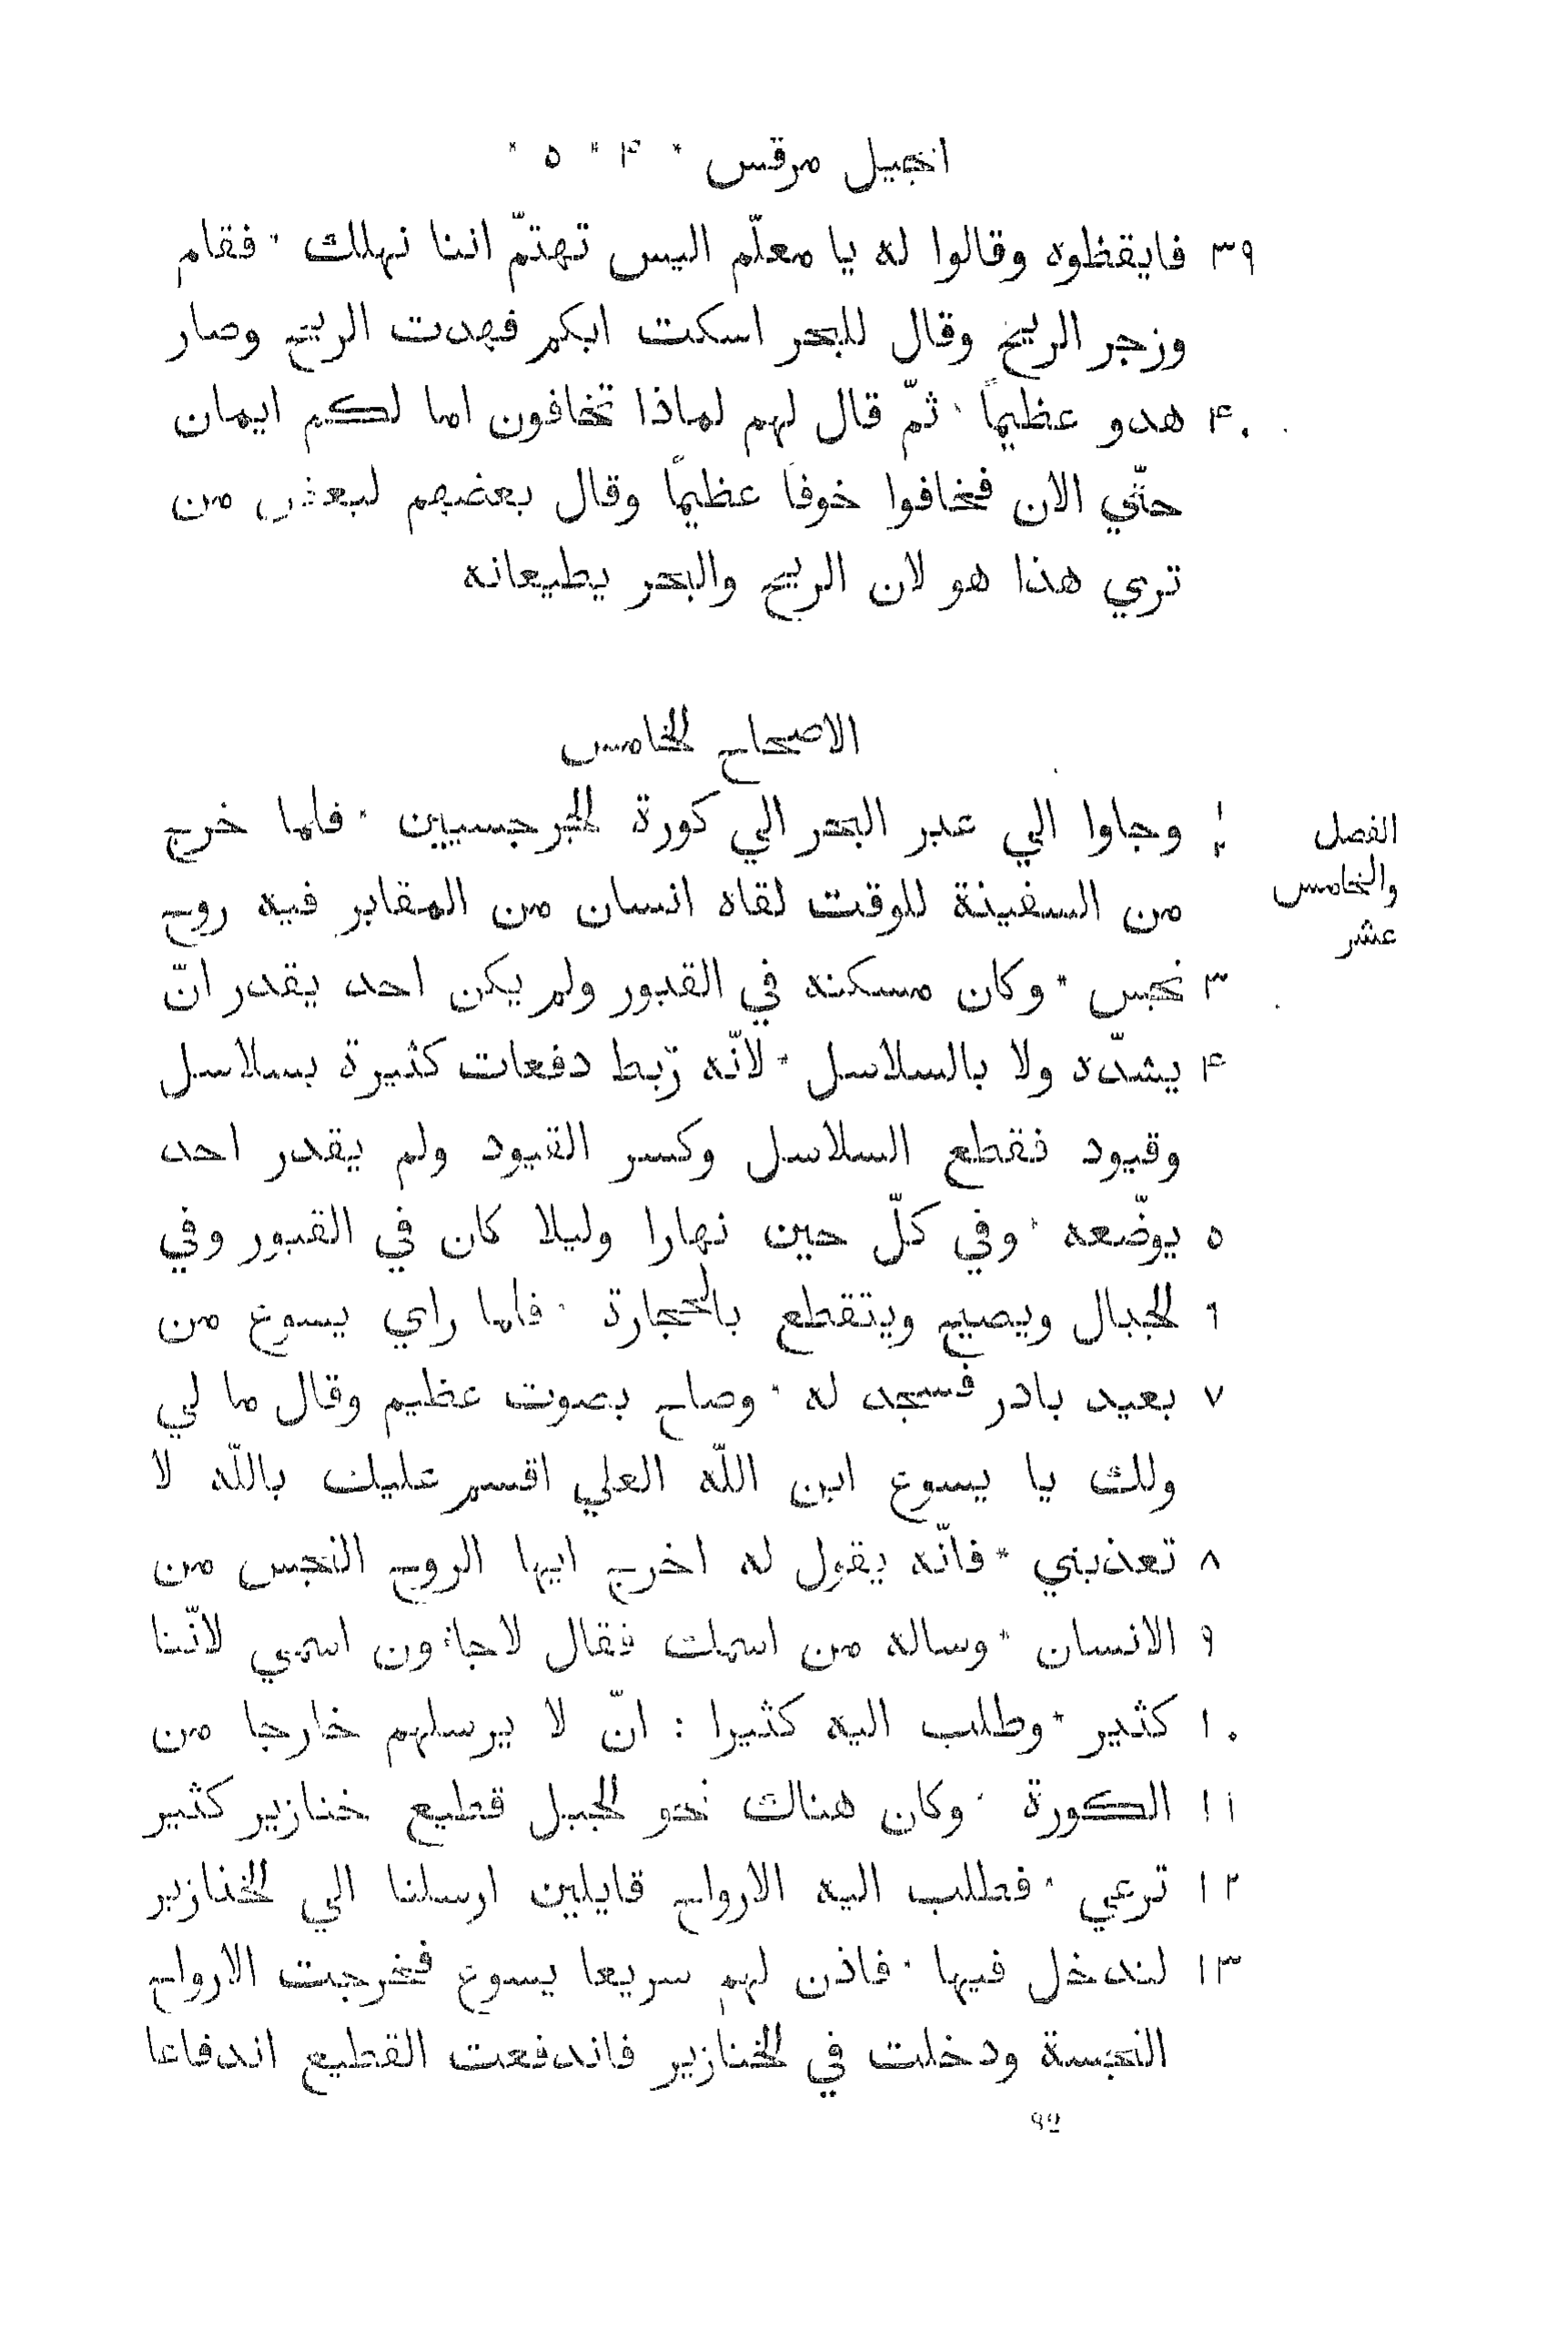 انجيل مرقس * ۴ * ٥ *
٣٩ فايقظوه وقالوا له يا معلّم اليس تهتمّ اننا نهلك * فقام
وزجر الريح وقال للبحر اسكت ابكم فهدت الريح وصار
۴٠ هدو عظيمًا * ثمّ قال لهم لماذا تخافون اما لكم ايمان
حتّي الان فخافوا خوفًا عظيمًا وقال بعضهم لبعض من
تري هذا هو لان الريح والبحر يطيعانه
الاصحاح الخامس
الفصل
والخامس
عشر
١ وجاوا الي عبر البحر الي كورة الجرجسيين * فلما خرج
٢ من السفينة للوقت لقاه انسان من المقابر فيه روح
٣ نجس * وكان مسكنه في القبور ولم يكن احد يقدر انّ
۴ يشدّه ولا بالسلاسل * لانّه رّبط دفعات كثيرة بسلاسل
وقيود فقطع السلاسل وكسر القيود ولم يقدر احد
٥ يوضّعه * وفي كلّ حين نهارا وليلا كان في القبور وفي
٦ الجبال ويصيح ويتقطع بالحجارة * فلما راي يسوع من
٧ بعيد بادر فسجد له * وصاح بصوت عظيم وقال ما لي
ولك يا يسوع ابن اللّه العلي اقسم عليك باللّه لا
٨ تعذبني * فانّه يقول له اخرج ايها الروح النجس من
٩ الانسان * وساله من اسمك فقال لاجاؤن اسمي لانّنا
١٠ كثير * وطلب اليه كثيرا : انّ لا يرسلهم خارجا من
١١ الكورة * وكان هناك نحو الجبل قطيع خنازير كثير
١٢ ترعي * فطلب اليه الارواح قايلين ارسلنا الي الخنازير
١٣ لندخل فيها * فاذن لهم سريعا يسوع فخرجت الارواح
النجسة ودخلت في الخنازير فاندفعت القطيع اندفاعا